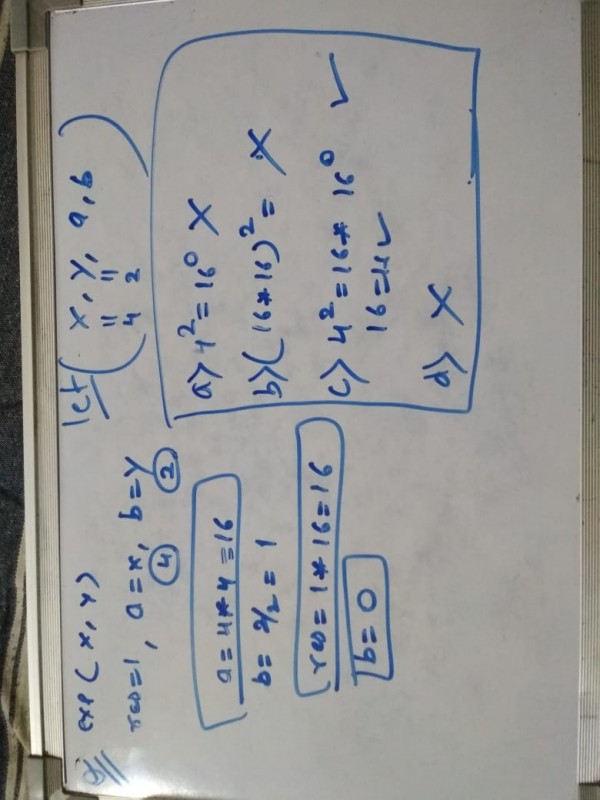 Q
exp(x,y)
res=1, a=x, b=y
4 2
a=4*4=16
b=2/2=1
res=1*16=16
b=0
let (x, y, a, b)
= =
4 2
a> 4²=16⁰ X
b> (16*16)² = X
c> 4²=16*16⁰ ✓
16=16 ✓
d> X